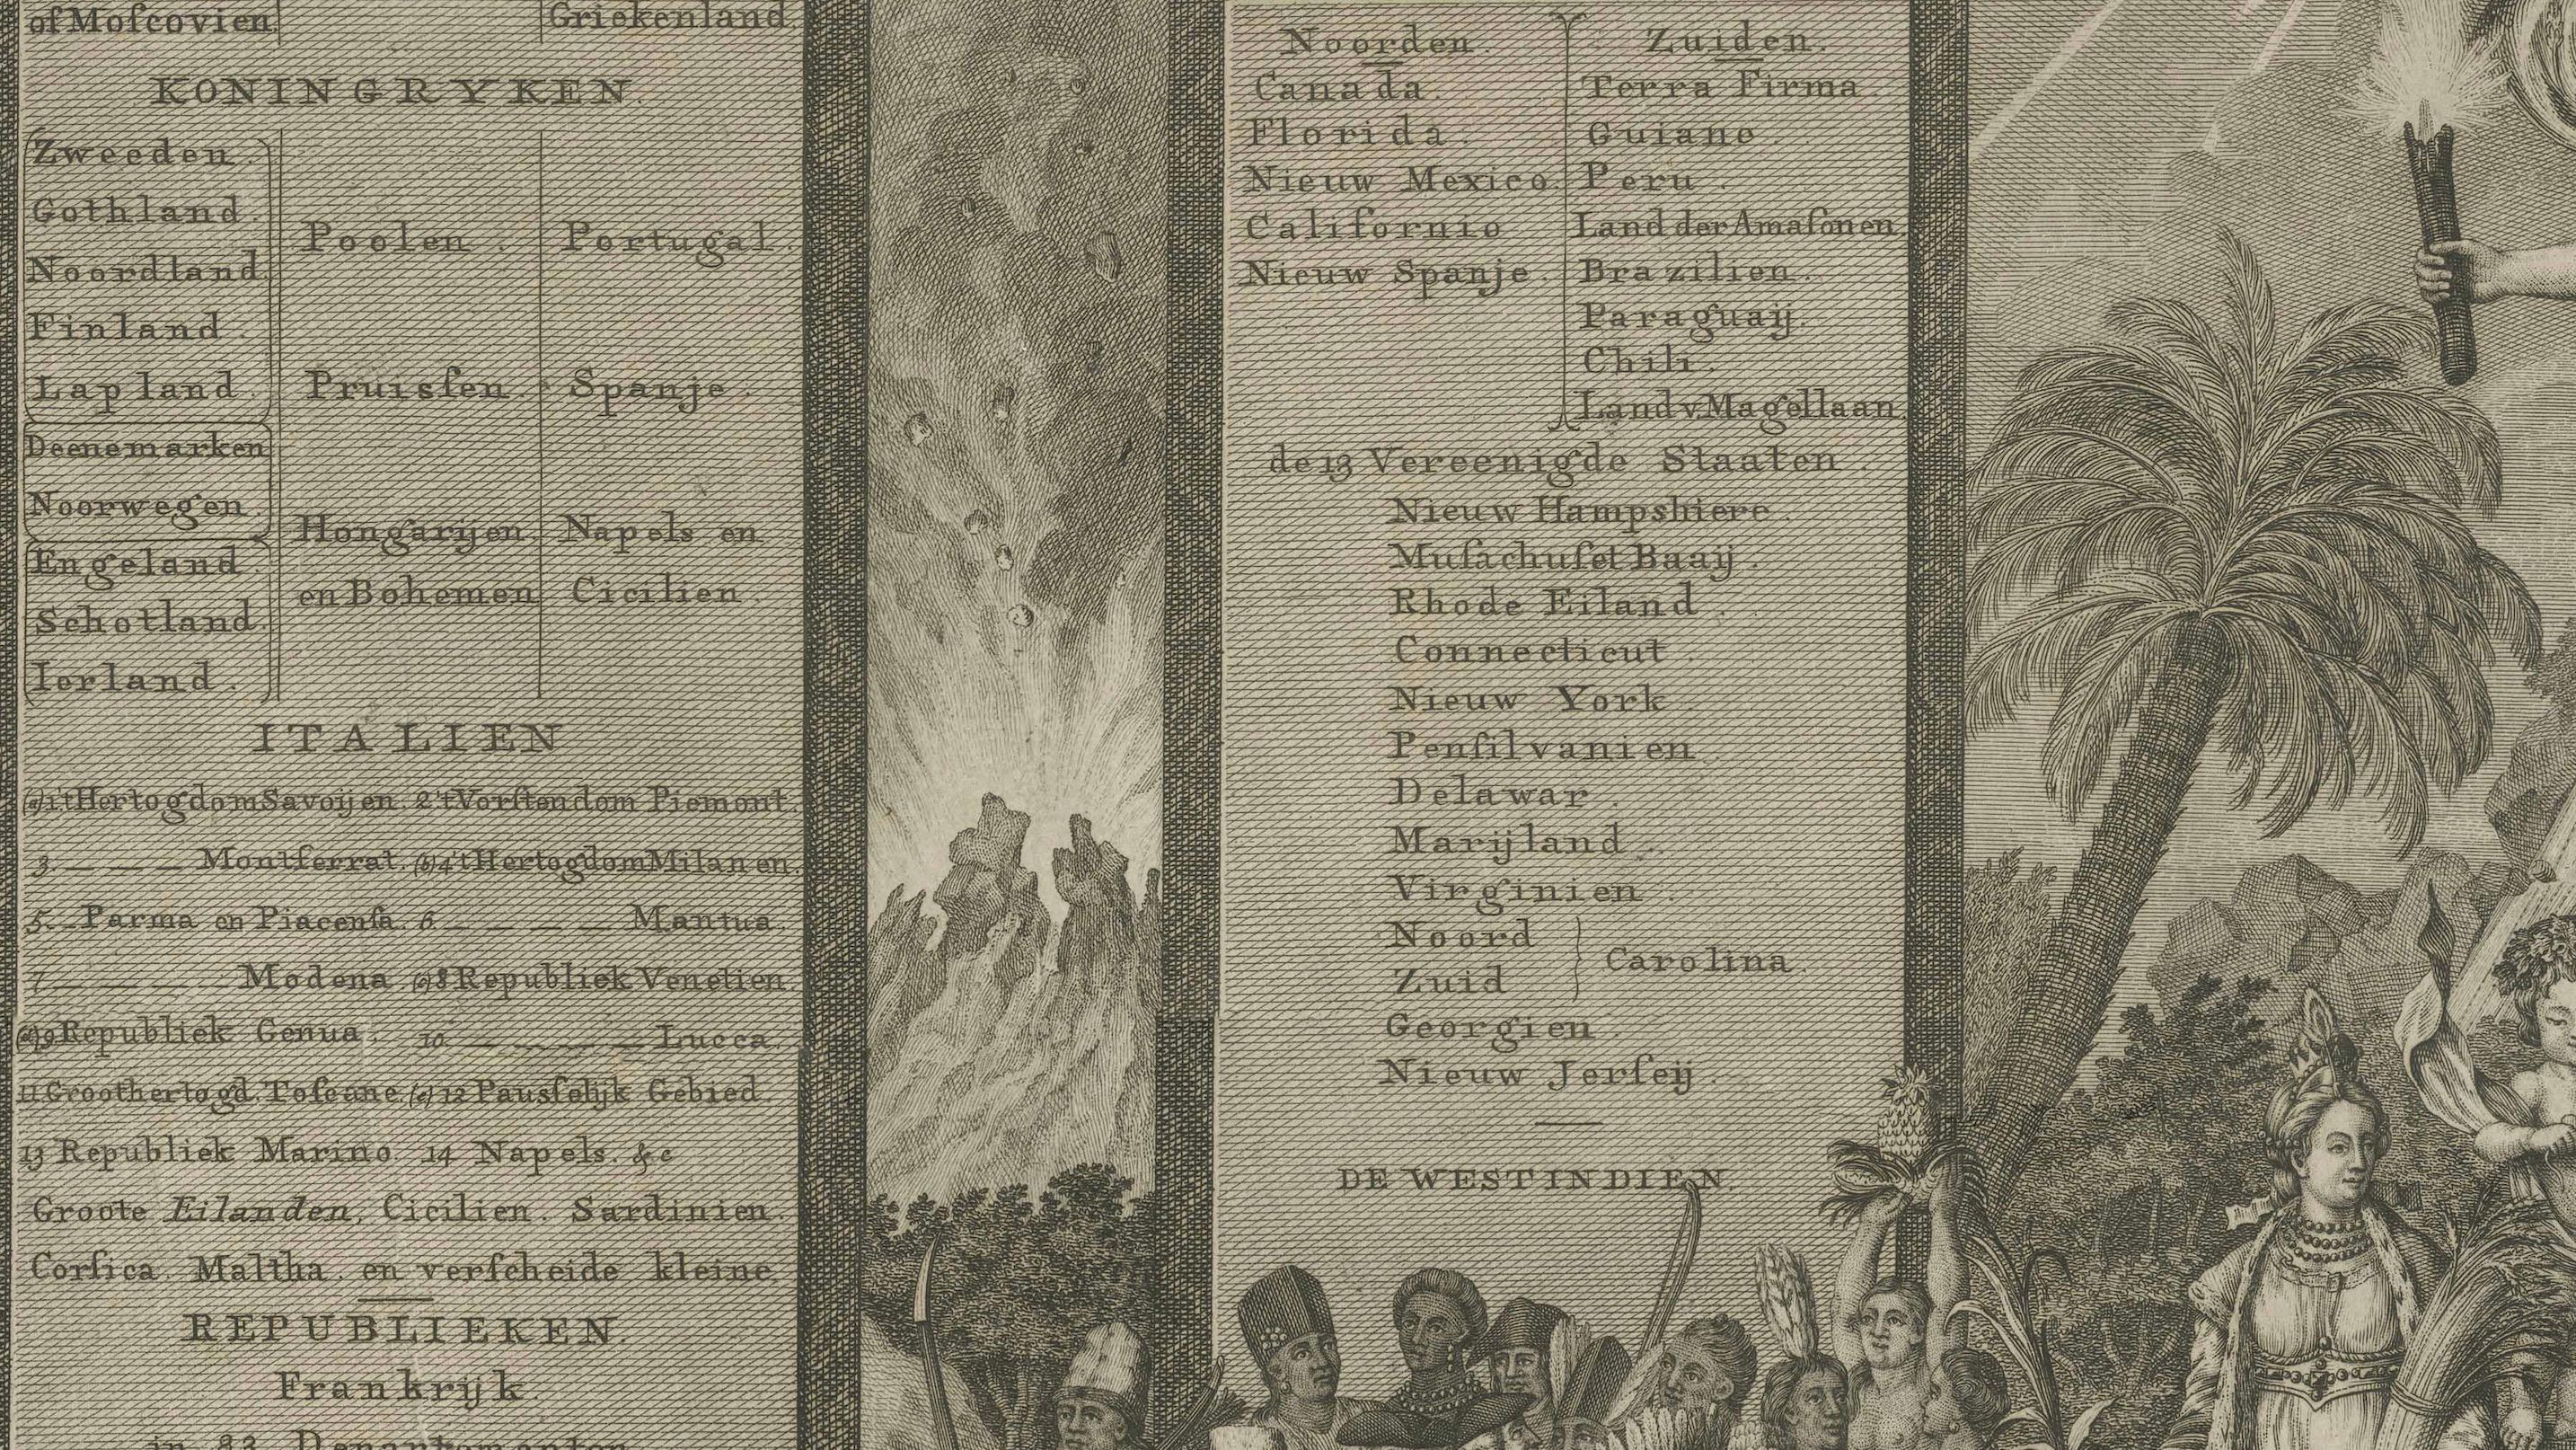 of Moſcovien.
Griekenland.
KONINGRYKEN.
Zweeden.
Gothland.
Noordland.
Finland.
Lapland.
Deenemarken
Noorwegen
Engeland.
Schotland.
Ierland.
Poolen.
Pruisſen.
Hongarijen
en Bohemen
Portugal.
Spanje.
Napels en
Cicilien.
ITALIEN
(a) 1 't Hertogdom Savoijen. 2 't Vorſtendom Piemont.
3. — — — Montferrat. (b) 4 't Hertogdom Milanen.
5. — Parma en Piacenſa. 6. — — — — Mantua.
7 — — — — Modena. (c) 8 Republiek Venetien.
(d) 9 Republiek Genua. 10. — — — — Lucca.
11 Groothertogd. Toſcane. (e) 12 Pausſelijk Gebied.
13 Republiek Marino. 14 Napels. &c
Groote Eilanden, Cicilien. Sardinien.
Corſica. Maltha. en verſcheide kleine.
REPUBLIEKEN.
Frankrijk.
in 83 Departementen
Noorden.
Canada.
Florida.
Nieuw Mexico.
Californio
Nieuw Spanje.
Zuiden.
Terra Firma.
Guiane.
Peru.
Land der Amaſonen.
Brazilien.
Paraguaij.
Chili.
Land v. Magellaan.
de 13 Vereenigde Staaten.
Nieuw Hampshiere.
Muſachuſet Baaij.
Rhode Eiland.
Connecticut.
Nieuw York.
Penſilvanien
Delawar.
Marijland.
Virginien.
Noord
Zuid
Carolina.
Georgien.
Nieuw Jerſeij.
DE WESTINDIEN.